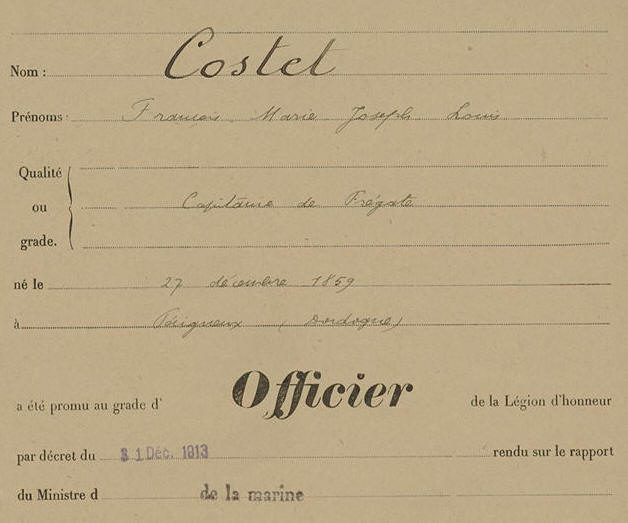 Nom : Costet
Prénoms : François Marie Joseph Louis
Qualité
ou Capitaine de Frégate
grade.
né le 27 décembre 1859
à Périgueux (Dordogne)
a été promu au grade d' Officier de la Légion d'honneur
par décret du 31 Déc. 1913 rendu sur le rapport
du Ministre d de la marine